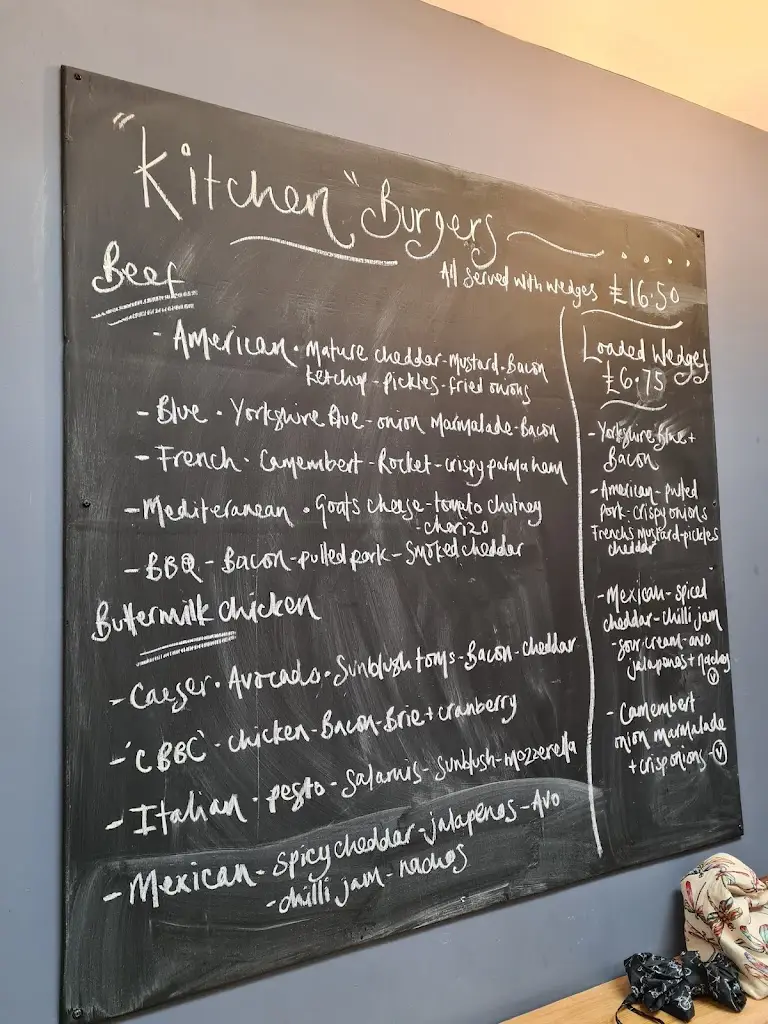 "Kitchen" Burgers
All served with wedges £16.50
Beef
- American · Mature cheddar - Mustard - Bacon
ketchup - pickles - fried onions
- Blue · Yorkshire Blue - onion Marmalade - Bacon
- French · Camembert - Rocket - crispy parma ham
- Mediteranean · Goats cheese - tomato chutney
- chorizo
- BBQ - Bacon - pulled pork - Smoked cheddar
Buttermilk chicken
- Caeser · Avocado · Sunblush toms - Bacon - cheddar
- 'CBBC' - chicken - Bacon - Brie + cranberry
- Italian · pesto - Salamis - Sunblush - mozzerella
- Mexican - Spicy cheddar - jalapenos - Avo
- chilli jam - nachos
Loaded Wedges
£6.75
- Yorkshire Blue +
Bacon
- American - pulled
pork - crispy onions
Frenchs mustard - pickles
cheddar
- Mexican - spiced
cheddar - chilli jam
- sour cream - avo
jalapenos + nachos
V
- Camembert
onion marmalade
+ crisp onions - V